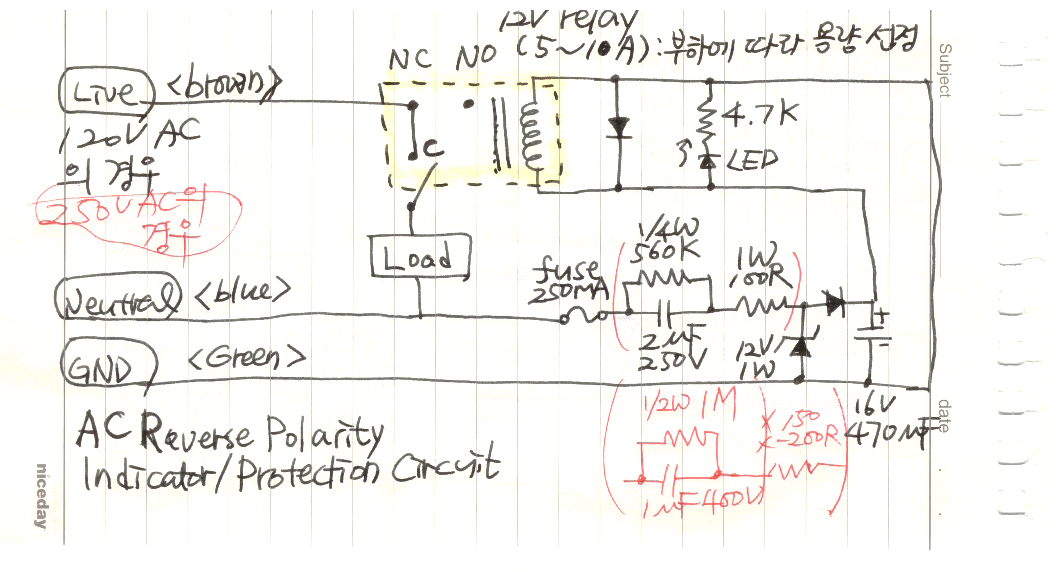 12V relay
(5~10A):부하에 따라 용량 선정
NC NO
Subject
Live <brown>
120V AC
의 경우
250V AC의
경우
C
4.7K
LED
Load
Neutral <blue>
fuse
250MA
1/4W
560K
2μF
250V
1W
100R
12V/
1W
+
-
16V
470μF
GND <Green>
1/2W 1M
1μF400V
150
~200R
date
AC Reverse Polarity
Indicator/Protection Circuit
niceday